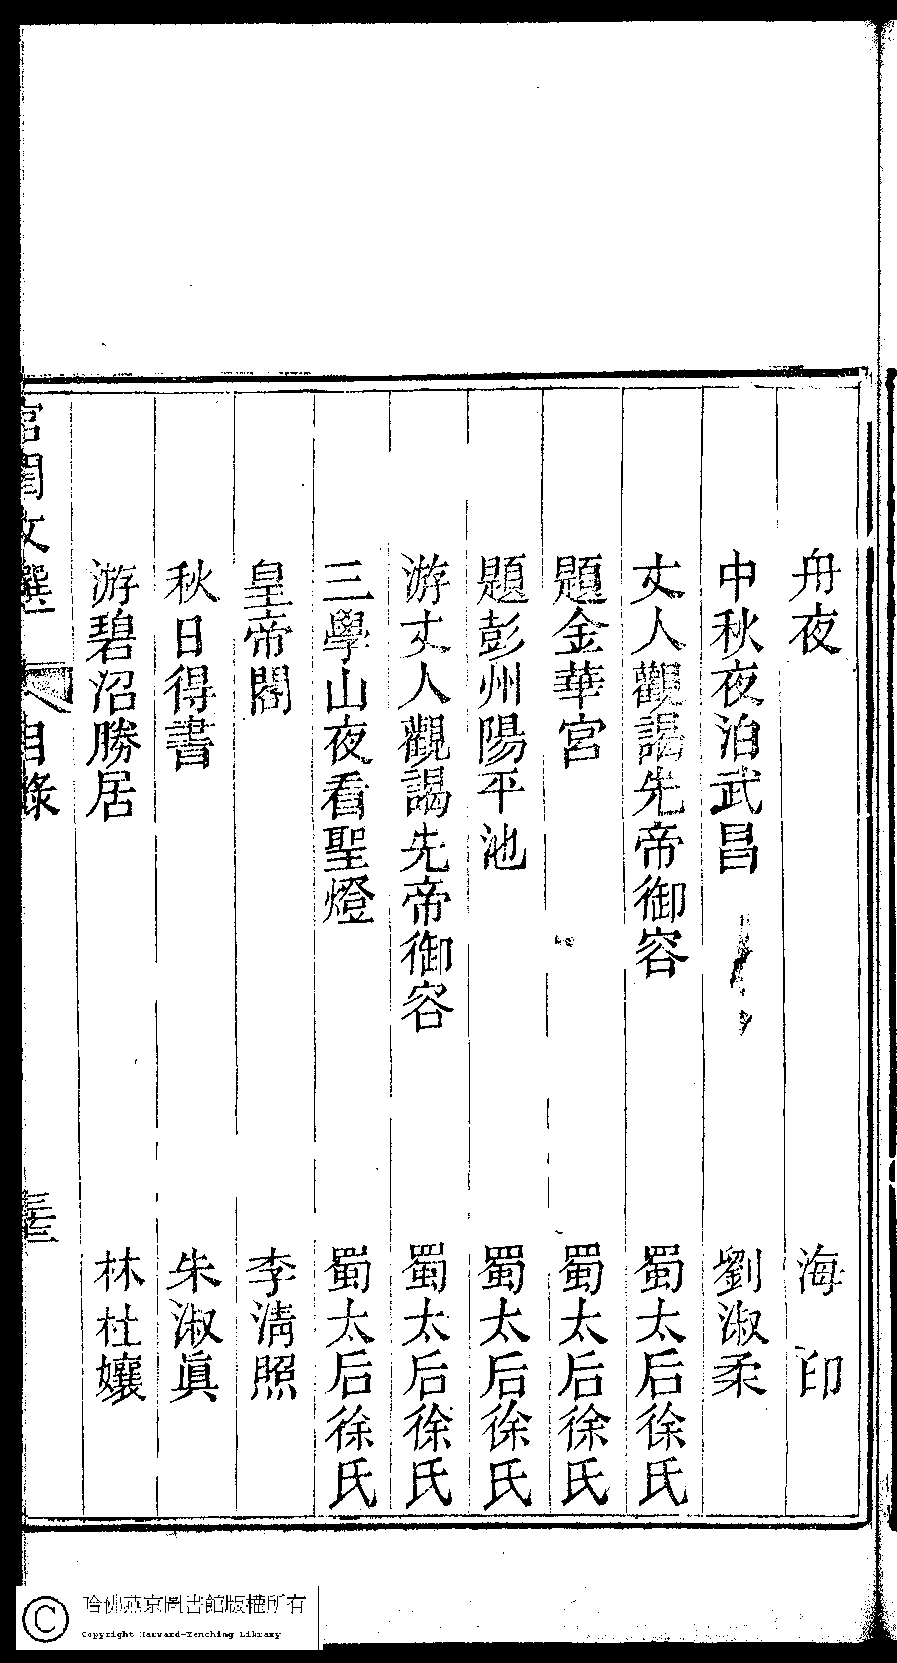 舟夜　海印
中秋夜泊武昌　劉淑柔
丈人觀謁先帝御容　蜀太后徐氏
題金華宮　蜀太后徐氏
題彭州陽平池　蜀太后徐氏
游丈人觀謁先帝御容　蜀太后徐氏
三學山夜看聖燈　蜀太后徐氏
皇帝閣　李淸照
秋日得書　朱淑眞
游碧沼勝居　林杜孃
宮閨文選　目錄
哈佛燕京圖書館版權所有
Copyright Harvard-Yenching Library